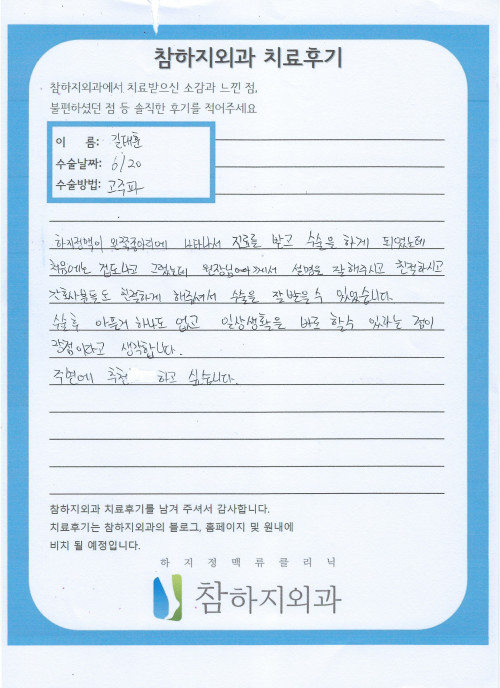 참하지외과 치료후기
참하지외과에서 치료받으신 소감과 느낀 점,
불편하셨던 점 등 솔직한 후기를 적어주세요
이 름: 길태훈
수술날짜: 6/20
수술방법: 고주파
하지정맥이 왼쪽종아리에 나타나서 진료를 받고 수술을 하게 되었는데
처음에는 겁도나고 그랬는데 원장님께서 설명을 잘해주시고 친절하시고
간호사분들도 친절하게 해주셔서 수술을 잘받을수 있었습니다.
수술후 아픈거 하나도 없고 일상생활을 바로 할수 있다는 점이
장점이라고 생각합니다.
주변에 추천 하고 싶습니다.
참하지외과 치료후기를 남겨 주셔서 감사합니다.
치료후기는 참하지외과의 블로그, 홈페이지 및 원내에
비치 될 예정입니다.
하지정맥류클리닉
참하지외과